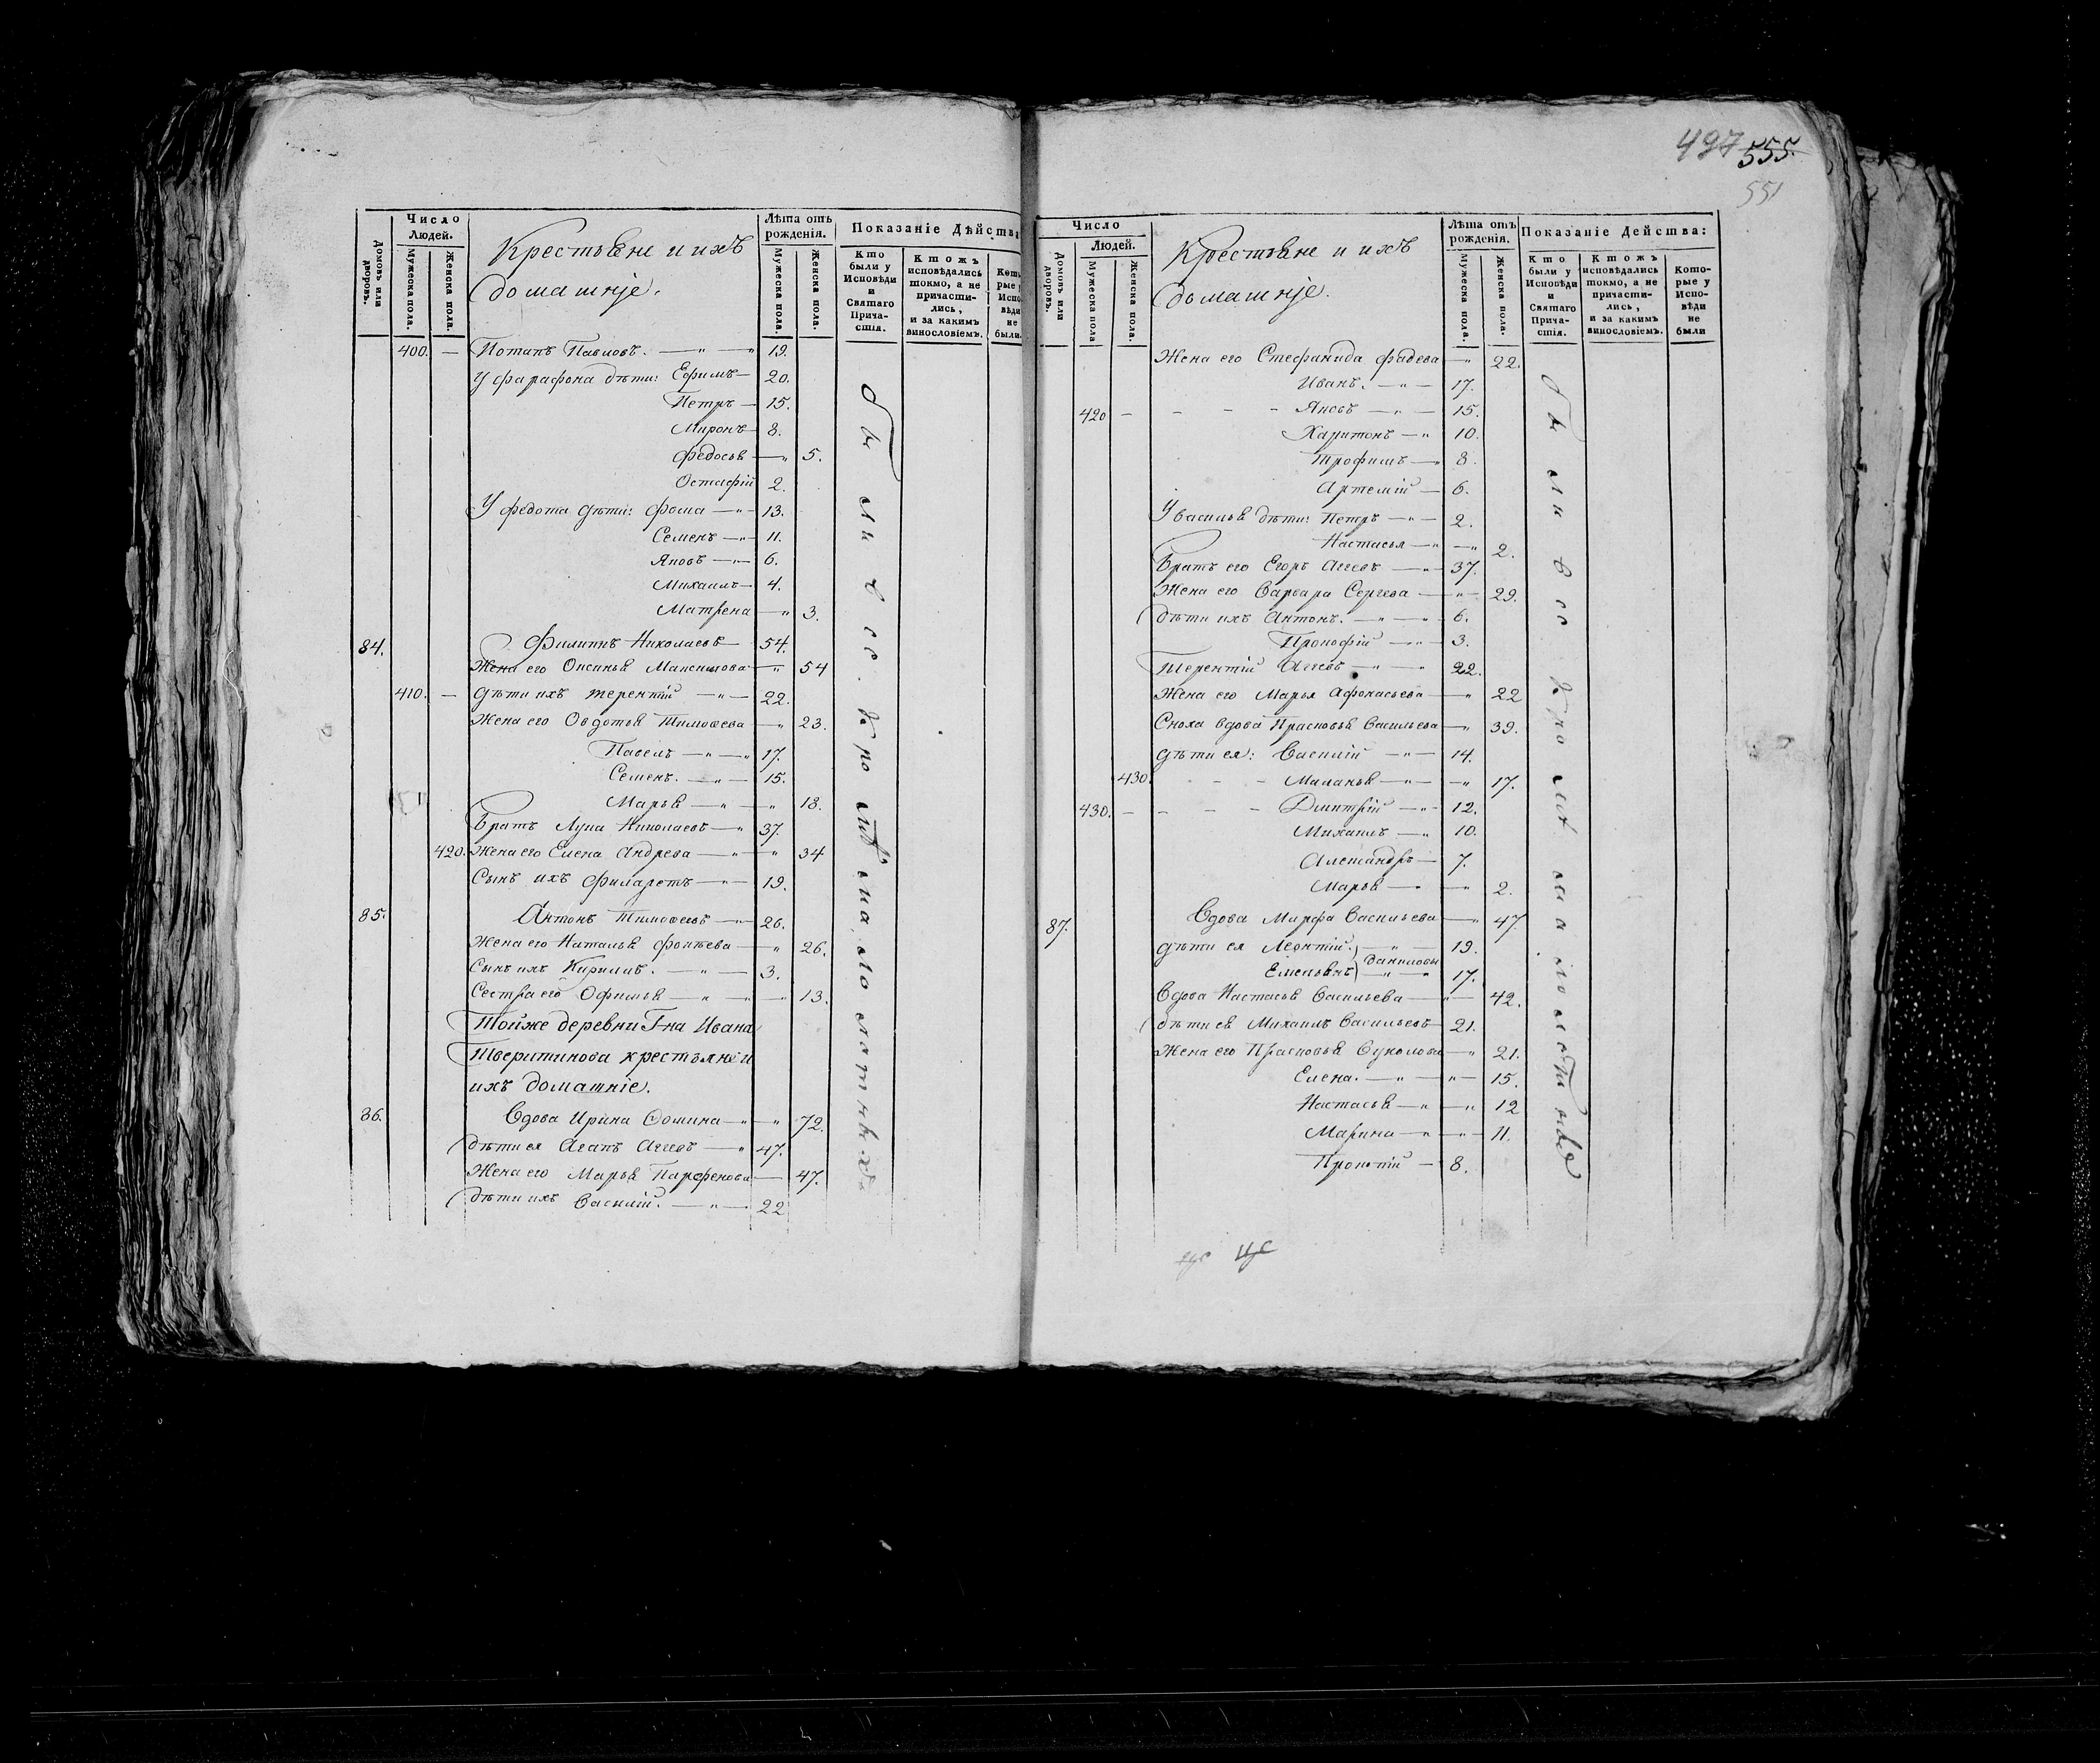 497 555.
551
Число
Людей.
Домовъ или дворовъ.
Мужеска пола.
Женска пола.
Крестьяне и ихъ
домашнје.
Лѣта отъ
рожденія.
Мужеска пола.
Женска пола.
Показаніе Дѣйства
Кто
были у
Исповѣди
и
Святаго
Прича-
стія.
Ктожъ
исповѣдались
токмо, а не
причасти-
лись,
и за какимъ
винословіемъ.
Кото
рые у
Испо-
вѣди
не
были.
400. — Потапъ Павловъ. — „ — „ 19.
У фарафона дѣти: Ефимъ — 20.
Петръ — 15.
Миронъ — 8.
Федосья — „ 5.
Остафій 2.
У федота дѣти: Фома — „ 13.
Семенъ — „ 11.
Яковъ — „ 6.
Михаилъ — 4.
Матрена — „ 3.
84. Филипъ Николаевъ — 54.
Жена его Оксинья Максимова — „ 54
410. — дѣти ихъ терентій — „ — 22.
Жена его Овдотья Тимофеева — „ 23.
Павелъ — „ — „ 17.
Семенъ. — „ — 15.
Марья — „ — „ 18.
Братъ Лука Николаевъ — „ 37.
420. Жена его Елена Андрева — „ — „ 34
Сынъ ихъ Филаретъ — „ — 19.
85. Антонъ Тимофеевъ — „ 26.
Жена его Наталья Фокѣева — „ 26.
Сынъ ихъ Кирилъ. — „ — 3.
Сестра его Офимья — „ — „ 13.
Тойже деревни Г-на Ивана
Тверитинова крестьяне и
ихъ домашніе.
86. Вдова Ирина Фомина — „ — „ 72.
дѣти ея Агапъ Аггевъ — „ 47.
Жена его Марья Парфенова — 47.
дѣти ихъ Василій. — „ — 22
были всѣ
Число
Людей.
Домовъ или дворовъ.
Мужеска пола
Женска пола.
Крестьяне и ихъ
домашнје.
Лѣта отъ
рожденія.
Мужеска пола.
Женска пола.
Показаніе Дейсmва:
Кто
были у
Исповѣди
и
Святаго
Прича-
стія.
Ктожъ
исповѣдались
токмо, а не
причасти-
лись,
и за какимъ
винословіемъ.
Кото-
рые у
Испо-
вѣди
не
были
Жена его Стефанида фадева — „ 22.
Иванъ. — „ — 17.
420 — Яковъ — „ — 15.
Харитонъ — „ 10.
Трофимъ — „ 8.
Артемій — 6.
У василья дѣти: Петръ — „ — 2.
Настасья — „ — „ 2.
Братъ его Егоръ Аггевъ — „ 37.
Жена его Варвара Сергева — „ — 29.
дѣти ихъ Антонъ. — „ — „ 6.
Прокофій — „ 3.
Терентій Аггевъ — „ — „ 22.
Жена его Марья Афонасьева — „ 22
Сноха вдова Прасковья Васильева — „ 39.
дѣти ея: Василій — „ — 14.
430. Маланья — „ — „ 17.
430. — Дмитрій — „ 12.
Михаилъ — „ 10.
Александръ — 7.
Марья — „ — „ 2.
87. Вдова Марфа Васильева — „ 47.
дѣти ея Леонтій. — „ — 19.
Емельянъ — „ — „ 17.
даниловы
Вдова Настасья Васильева — „ — 42.
дѣти ея Михаилъ Васильевъ 21.
Жена его Прасковья — „ 21.
Елена. — „ — „ — 15.
Настасья — „ — „ 12
Марина — „ — „ — 11.
8.
были всѣ